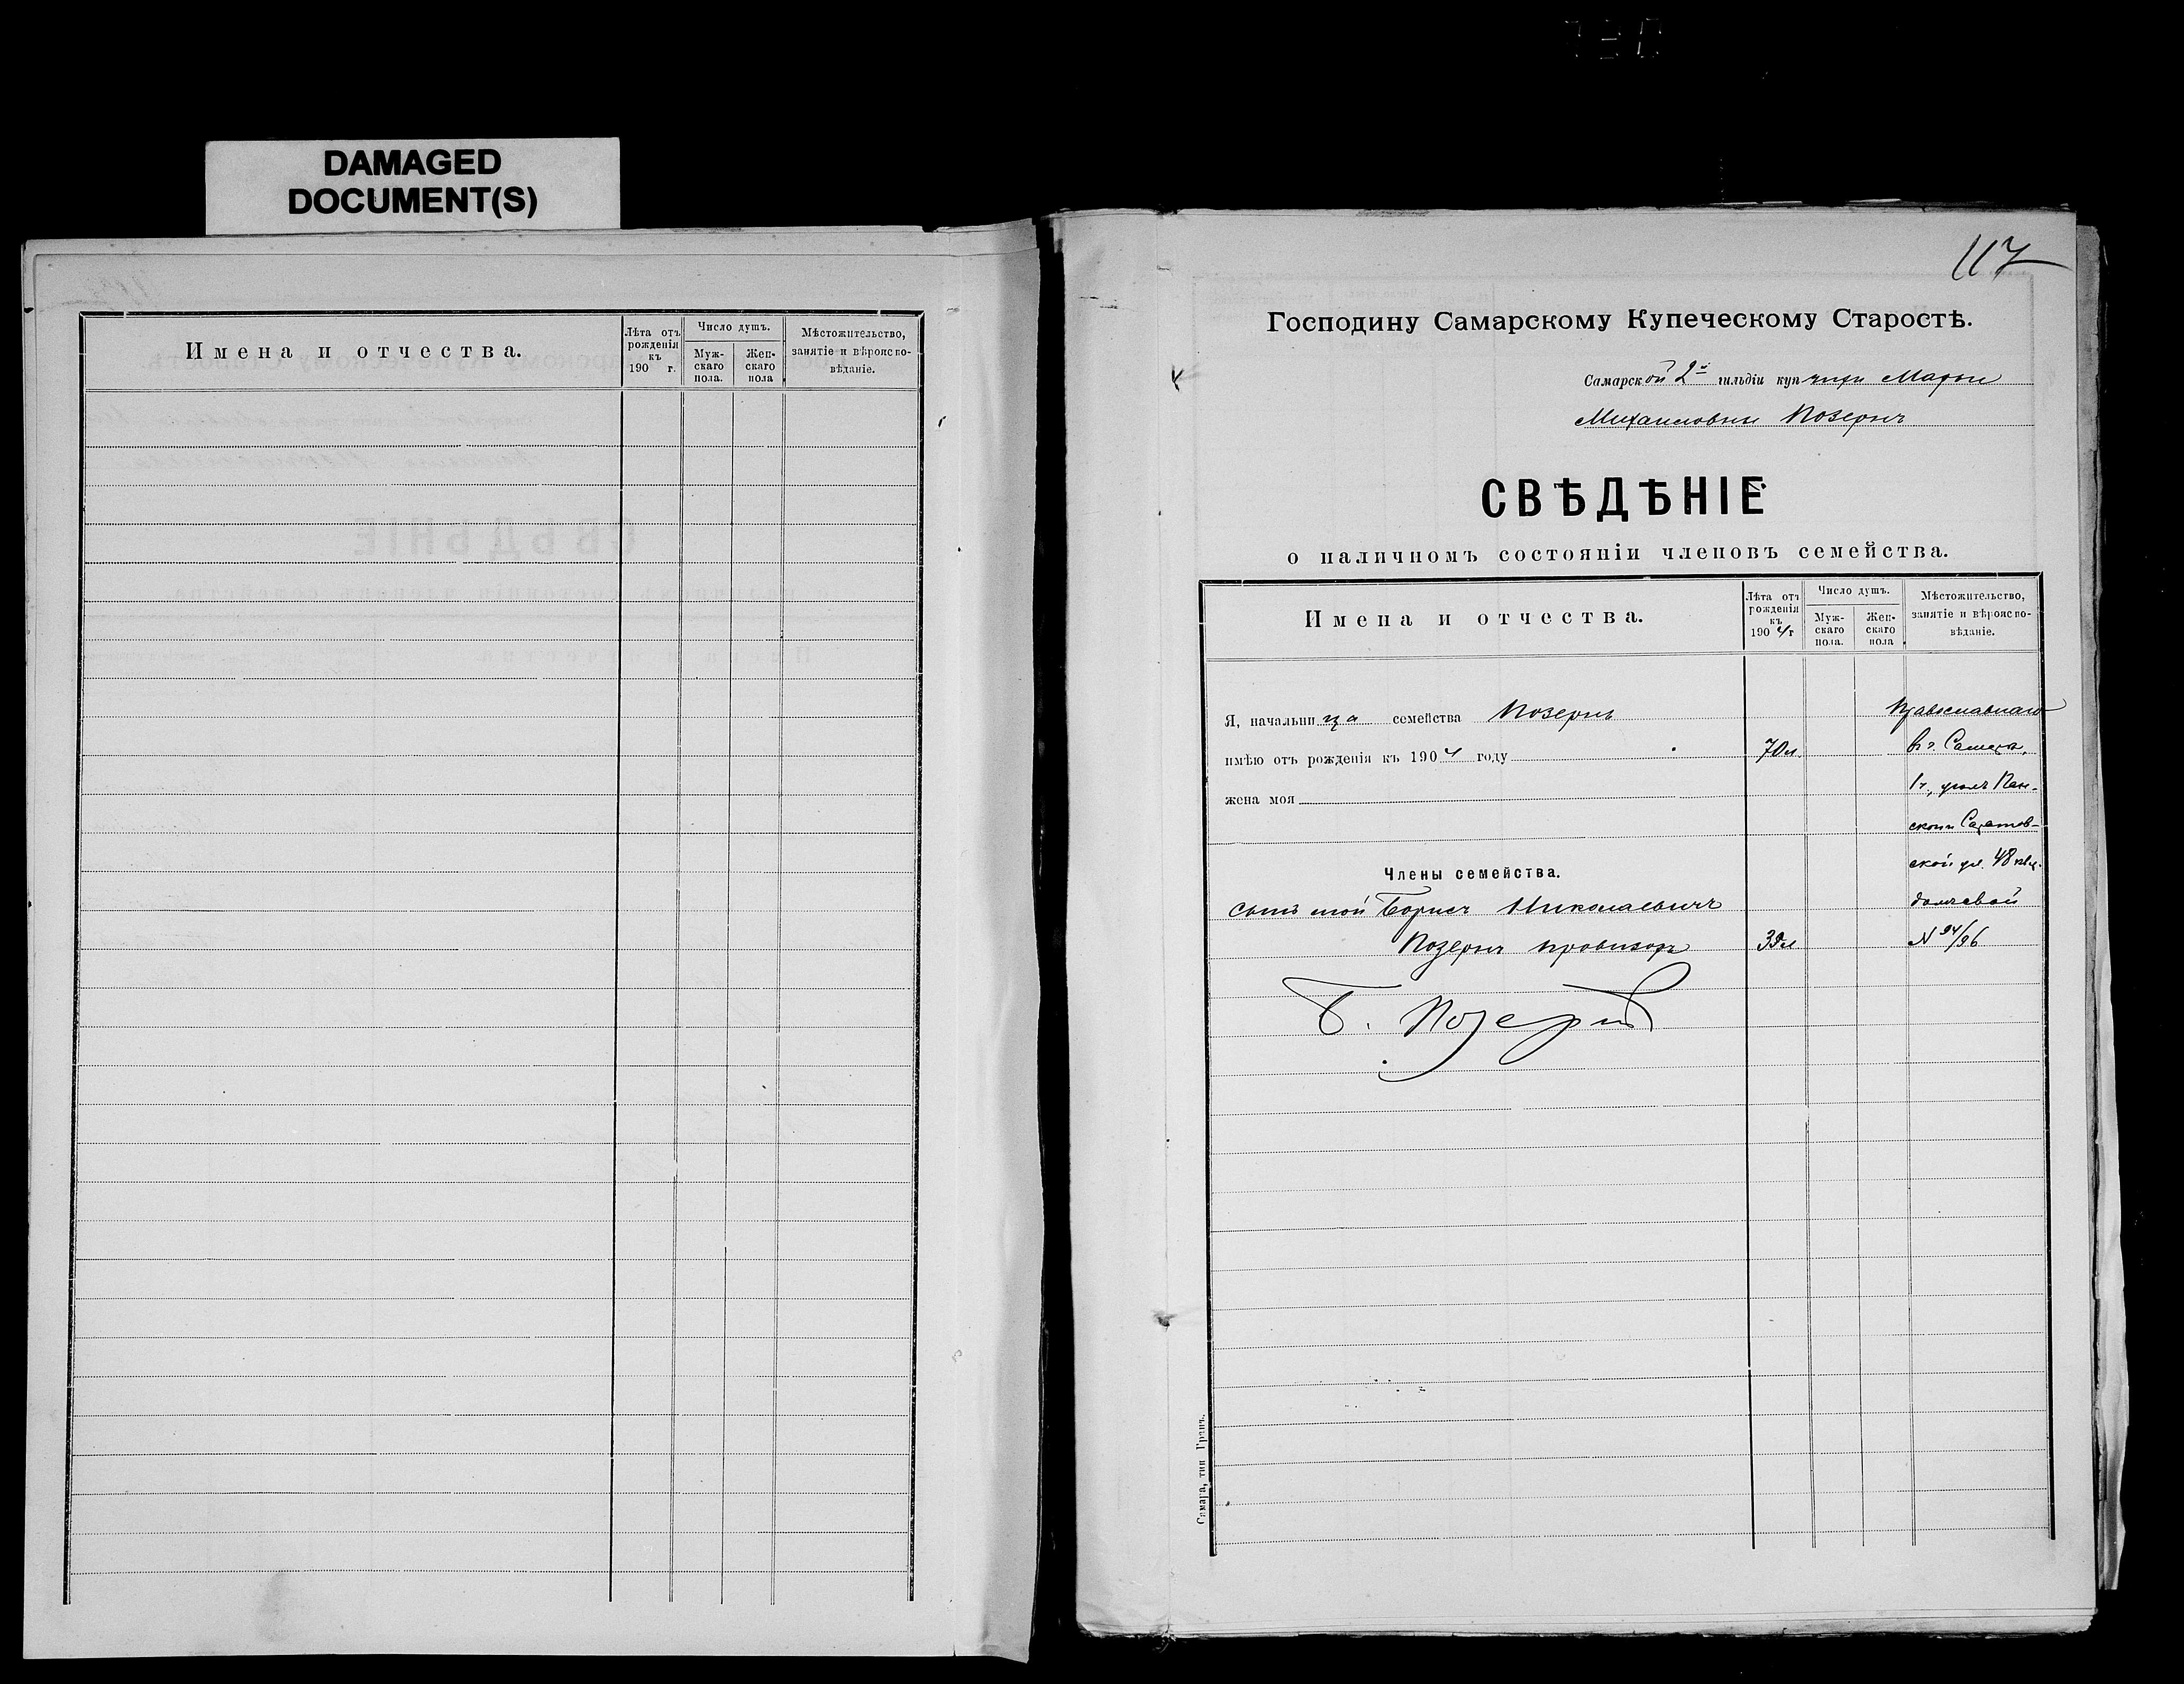 DAMAGED
DOCUMENT(S)
Имена и отчества.
Лѣта отъ рожденія къ 190 г.
Число душъ.
Мужскаго пола.
Женскаго пола
Мѣстожительство, занятіе и вѣроисповѣданіе.
117
Господину Самарскому Купеческому Старостѣ.
Самарской 2й гильдіи купчихи Марьи
Михаиловны Позернъ
СВѢДѢНІЕ
о наличномъ состояніи членовъ семейства.
Имена и отчества.
Лѣта отъ рожденія къ 1904 г
Число душъ.
Мужскаго пола.
Женскаго пола
Мѣстожительство, занятіе и вѣроисповѣданіе.
Я, начальница семейства Позернъ
Православнаго
имѣю отъ рожденія къ 1904 году 70 л.
въ г. Самара,
жена моя
1 ч., уголъ Пан-
ской и Саратов-
ской ул. 48 кв.
Члены семейства.
сынъ мой Борисъ Николаевичъ
домъ свой
Позернъ провизоръ 39 л
N 94/96
Б. Позернъ
Самара, тип Гранъ.